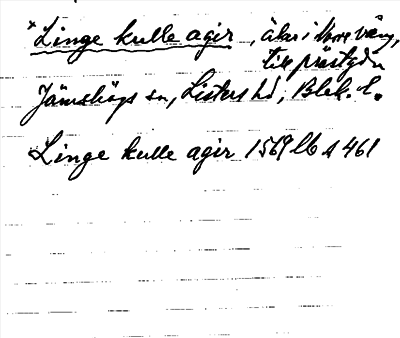 *Linge kulle agir, åker i Norre vång,
till prästgdn
Jämshögs sn, Listers hd, Blek. l.
Linge kulle agir 1569 lb s 461